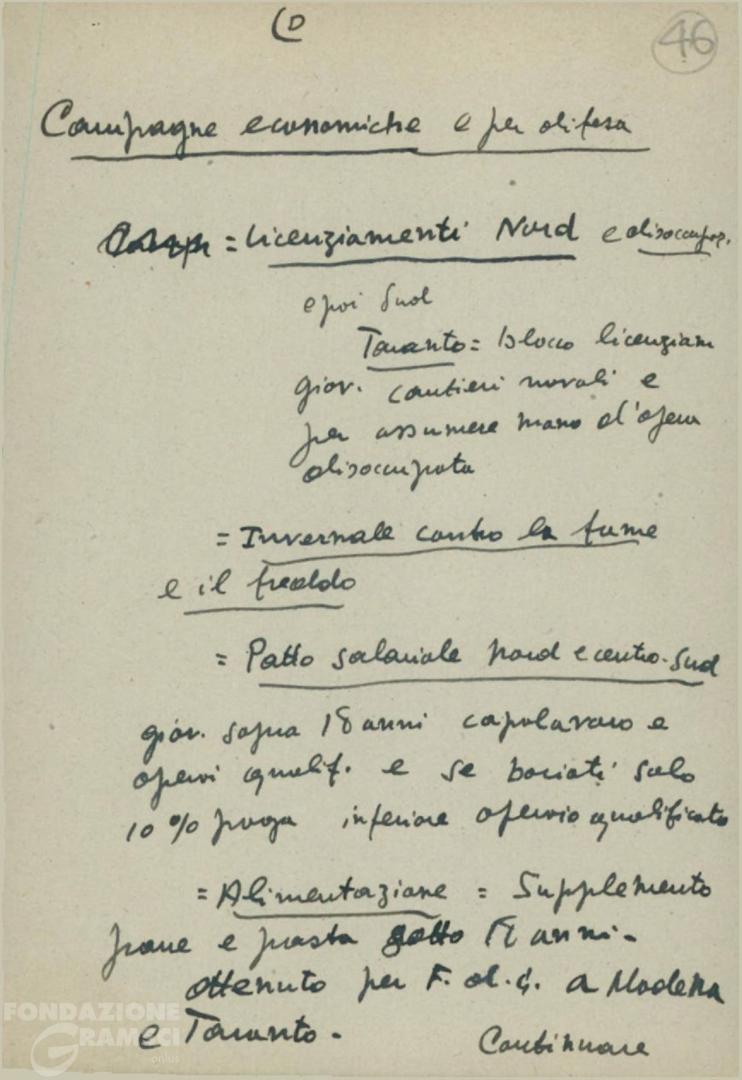 46
Campagne economiche e per difesa
= licenziamenti Nord e disoccupaz.
e poi Sud
Taranto = blocco licenziam
giov. cantieri navali e
per assumere mano d'opera
disoccupata
= Invernale contro la fame
e il freddo
= Patto salariale nord e centro-Sud
giov. sopra 18 anni capolavoro e
operai qualif. e se bociati solo
10% paga inferiore operaio qualificato
= Alimentazione = Supplemento
pane e pasta sotto 18 anni -
ottenuto per F. d. G. a Modena
e Taranto - Continuare
FONDAZIONE
GRAMSCI
onlus